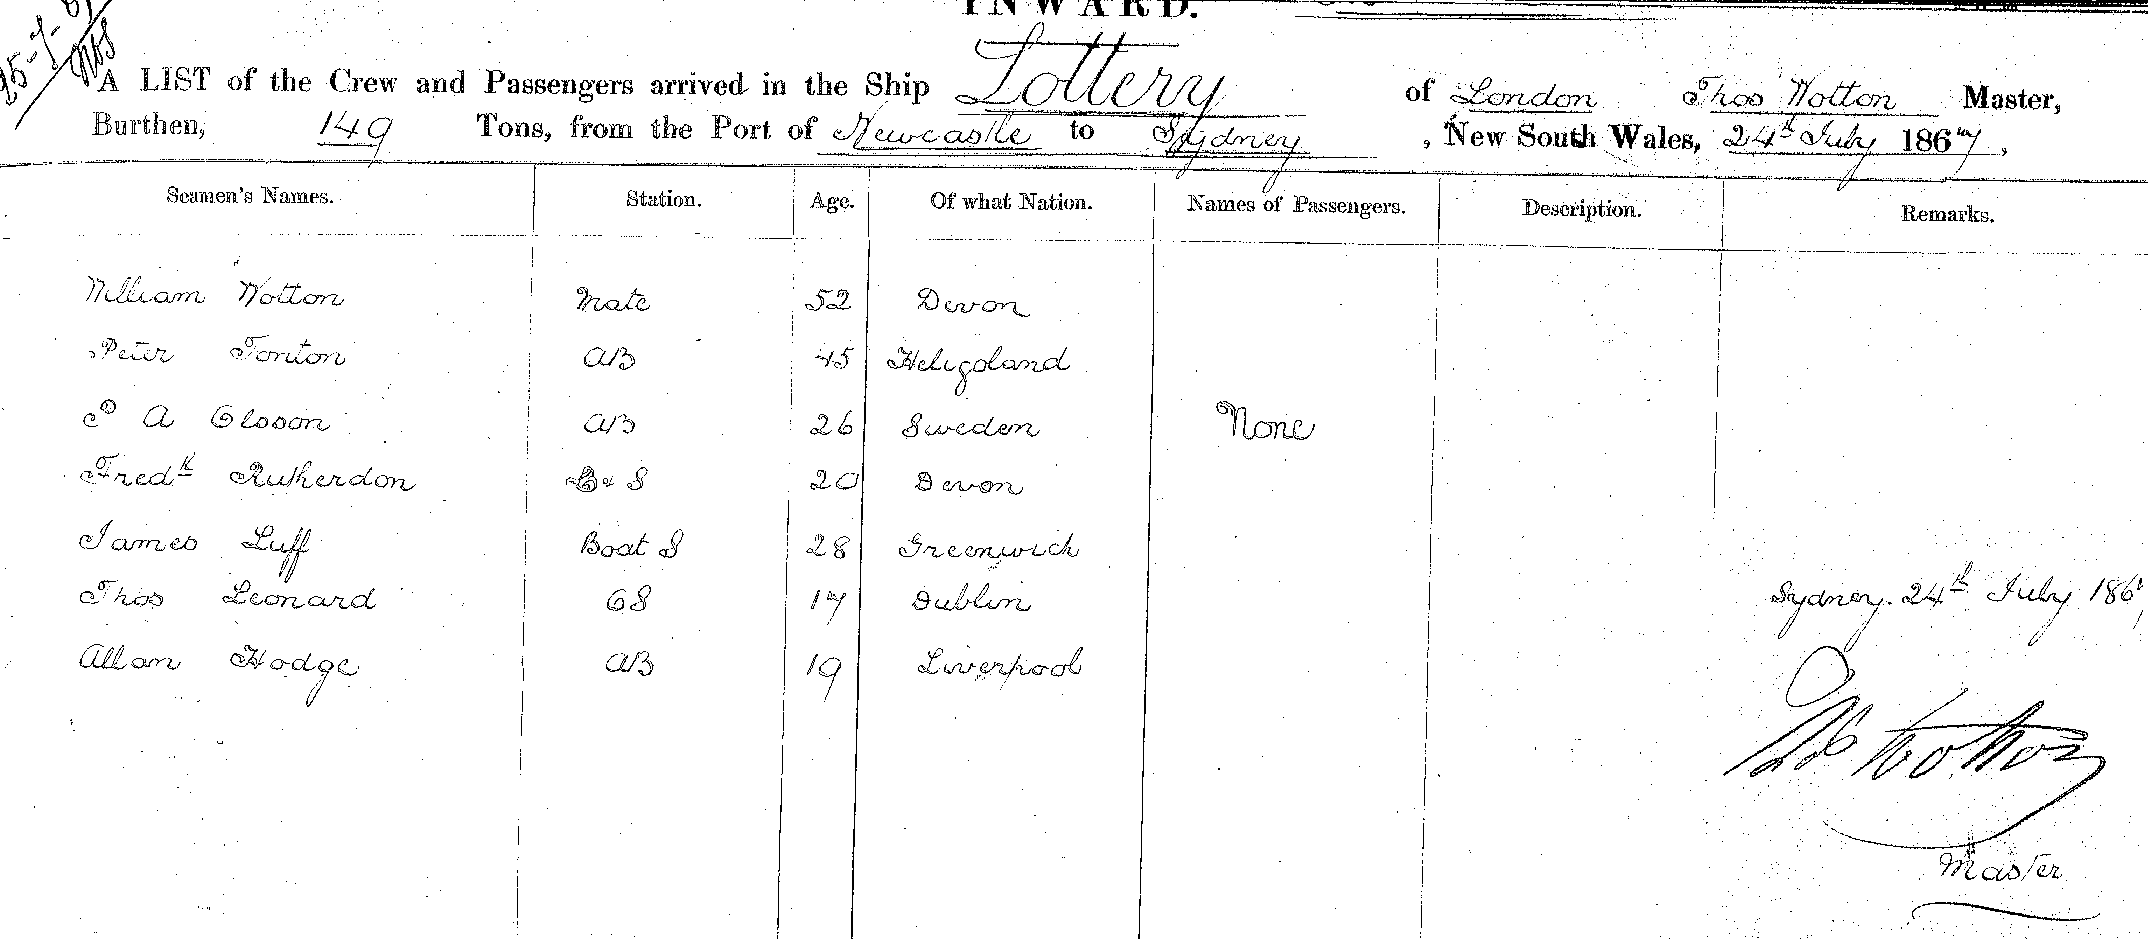 INWARD.
A LIST of the Crew and Passengers arrived in the Ship Lottery of London Thos Wotton Master,
Burthen, 149 Tons, from the Port of Newcastle to Sydney, New South Wales, 24th July 1867,
Seamen's Names. Station. Age. Of what Nation. Names of Passengers. Description. Remarks.
William Wotton Mate 52 Devon
Peter Tonton AB 45 Heligoland
P A Oloson AB 26 Sweden None
Fredk Rutherdon S 20 Devon
James Luff Boat S 28 Greenwich
Thos Leonard OS 17 Dublin
Sydney. 24th July 186
Allan Hodge AB 19 Liverpool
Wotton
Master